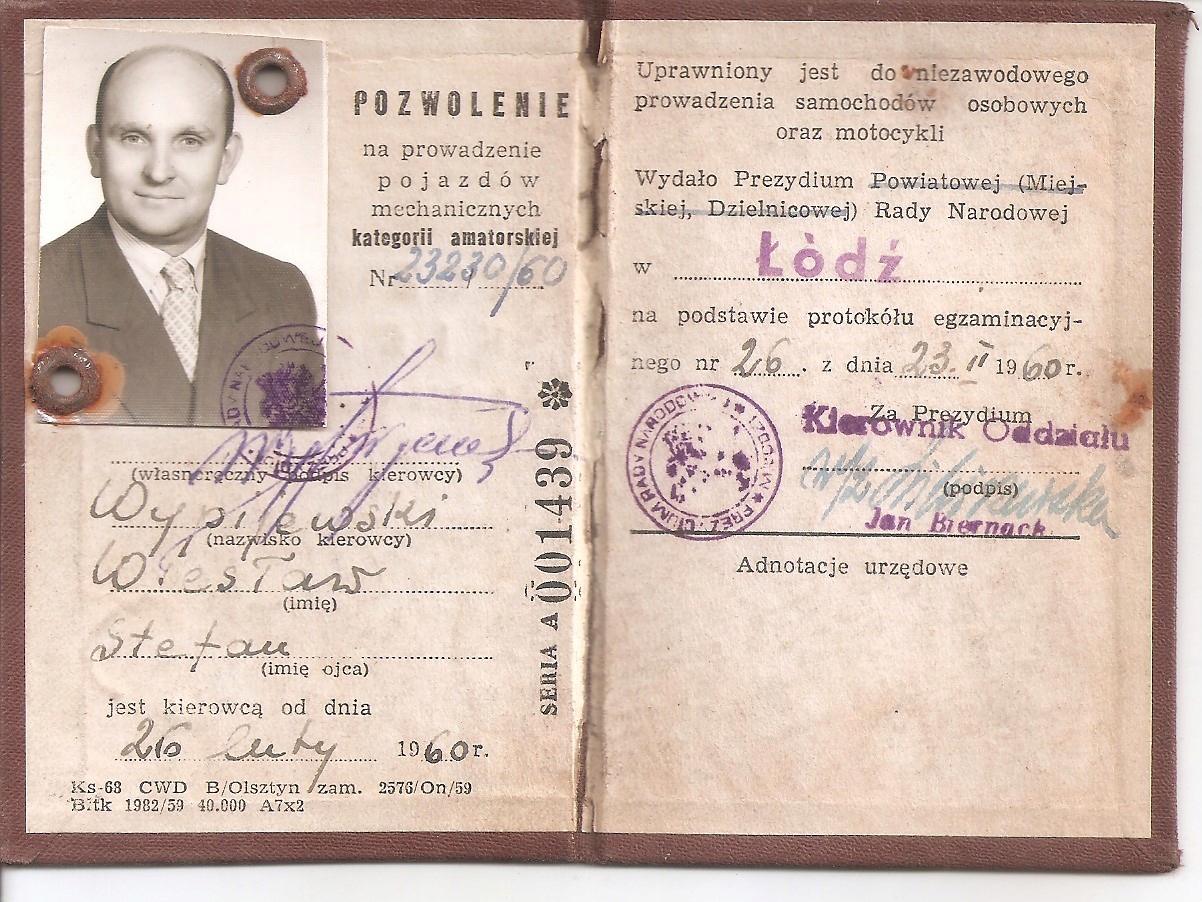 POZWOLENIE
na prowadzenie
pojazdów
mechanicznych
kategorii amatorskiej
Nr 23230/60
(własnoręczny podpis kierowcy)
Wypijewski
(nazwisko kierowcy)
Wiesław
(imię)
Stefan
(imię ojca)
jest kierowcą od dnia
26 luty 1960r.
Ks-68 CWD B/Olsztyn zam. 2576/On/59
Bitk 1982/59 40.000 A7x2
SERIA A 001439
Uprawniony jest do niezawodowego
prowadzenia samochodów osobowych
oraz motocykli
Wydało Prezydium Powiatowej (Miej-
skiej, Dzielnicowej) Rady Narodowej
w Łòdź
na podstawie protokółu egzaminacyj-
nego nr 26. z dnia 23. II 1960r.
Za Prezydium
Kierownik Oddziału
(podpis)
Jan Biernack
PREZYDIUM RADY NARODOWEJ M. ŁODZI
Adnotacje urzędowe